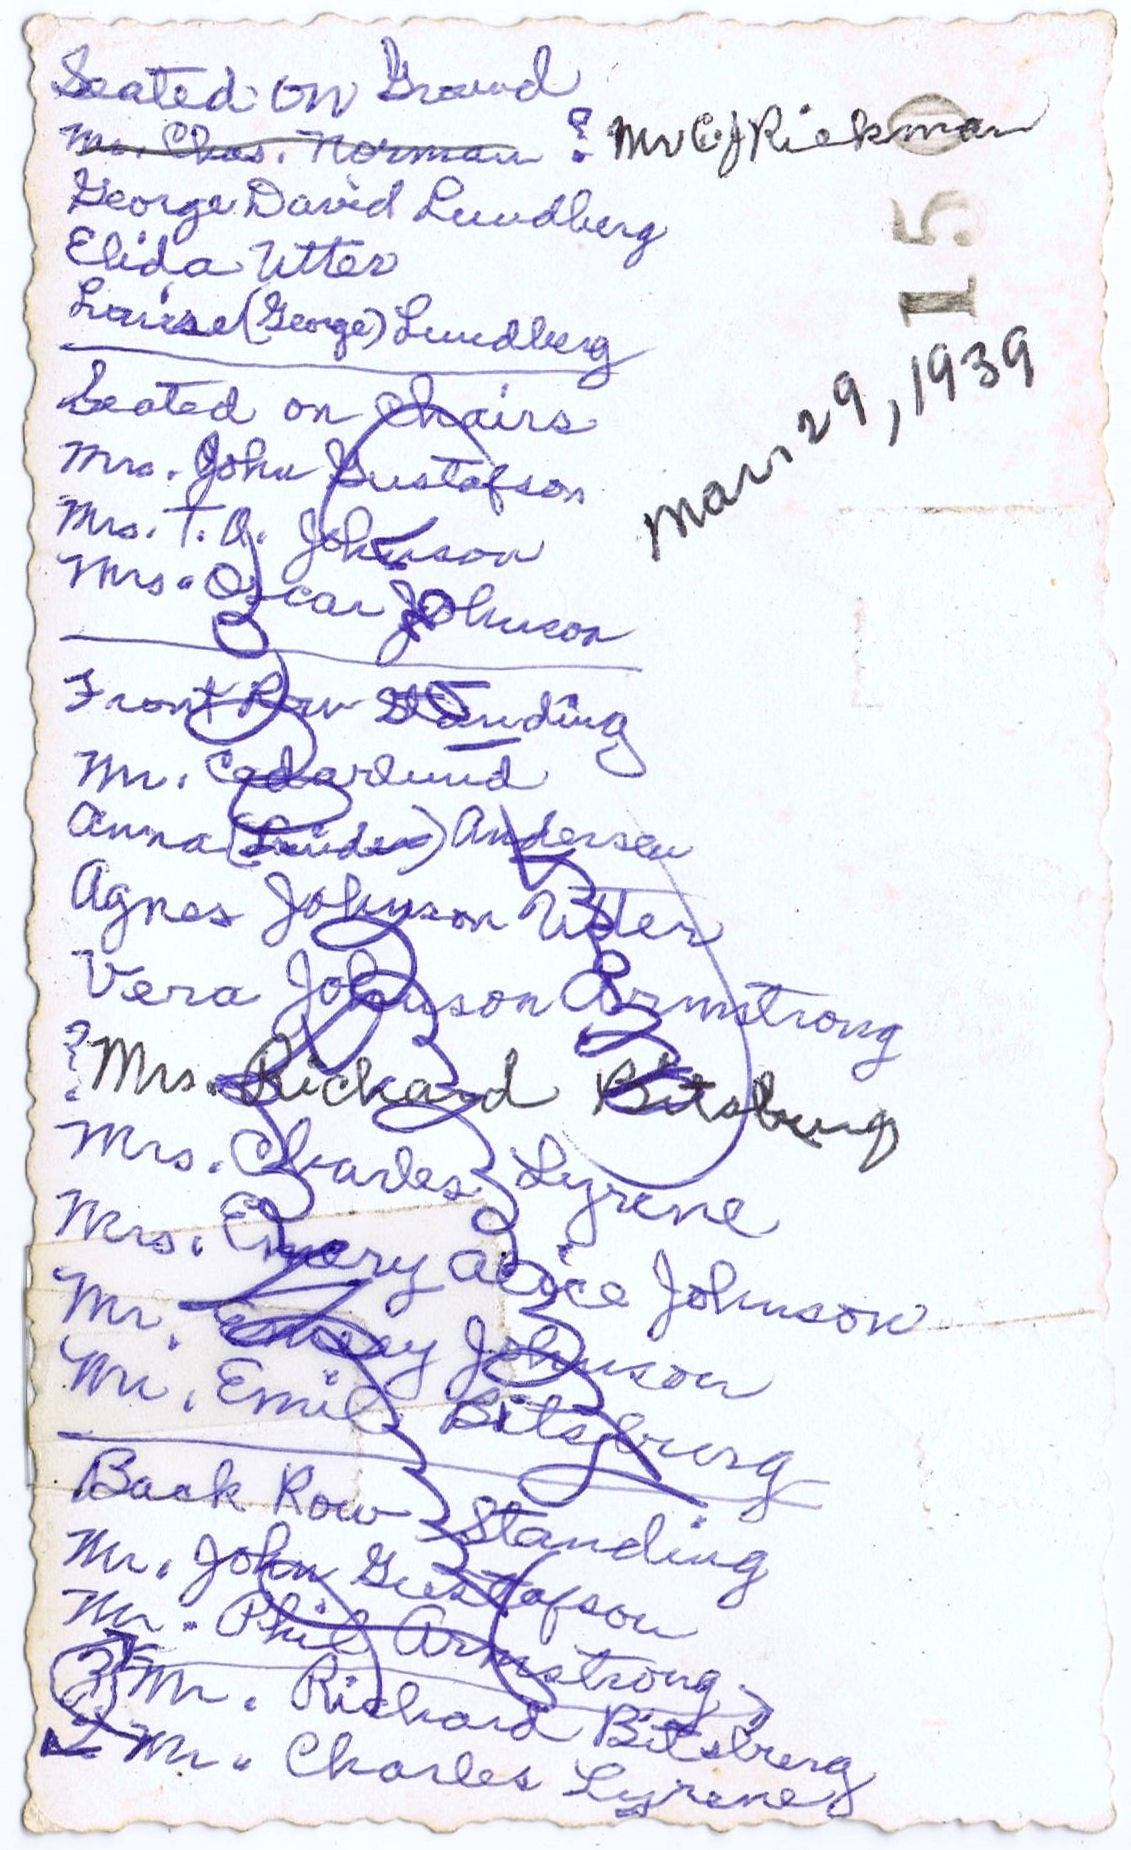 Seated on Ground
Mr. Chas. Norman ? Mr C J Rickman
George David Lundberg
Elida Utter
Louise (George) Lundberg
15
Mar 29, 1939
Seated on Chairs
Mrs. John Gustafson
Mrs. T. O. Johnson
Mrs. Oscar Johnson
Front Row Standing
Mr. Cedarlund
Anna Andersen
Agnes Johnson Utter
Vera Johnson Armstrong
? Mrs. Rickard Bitsburg
Mrs. Charles Lyrene
Mrs. Emery Alice Johnson
Mr. Emery Johnson
Mr. Emil Bitsburg
Back Row Standing
Mr. John Gustafson
Mr. Phil Armstrong
3 Mr. Richard Bitsberg
2 Mr. Charles Lyrene